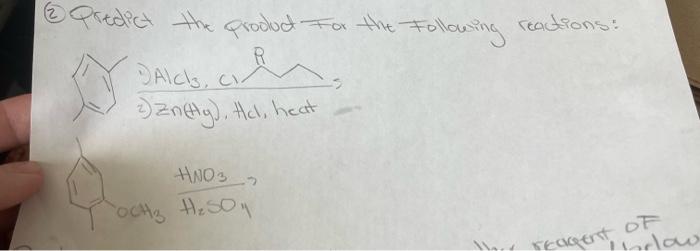 ② Predict the product For the Following reactions:
R
1) AlCl3, Cl
2) Zn(Hg), HCl, heat
HNO3
OCH3 H2SO4
reagent OF